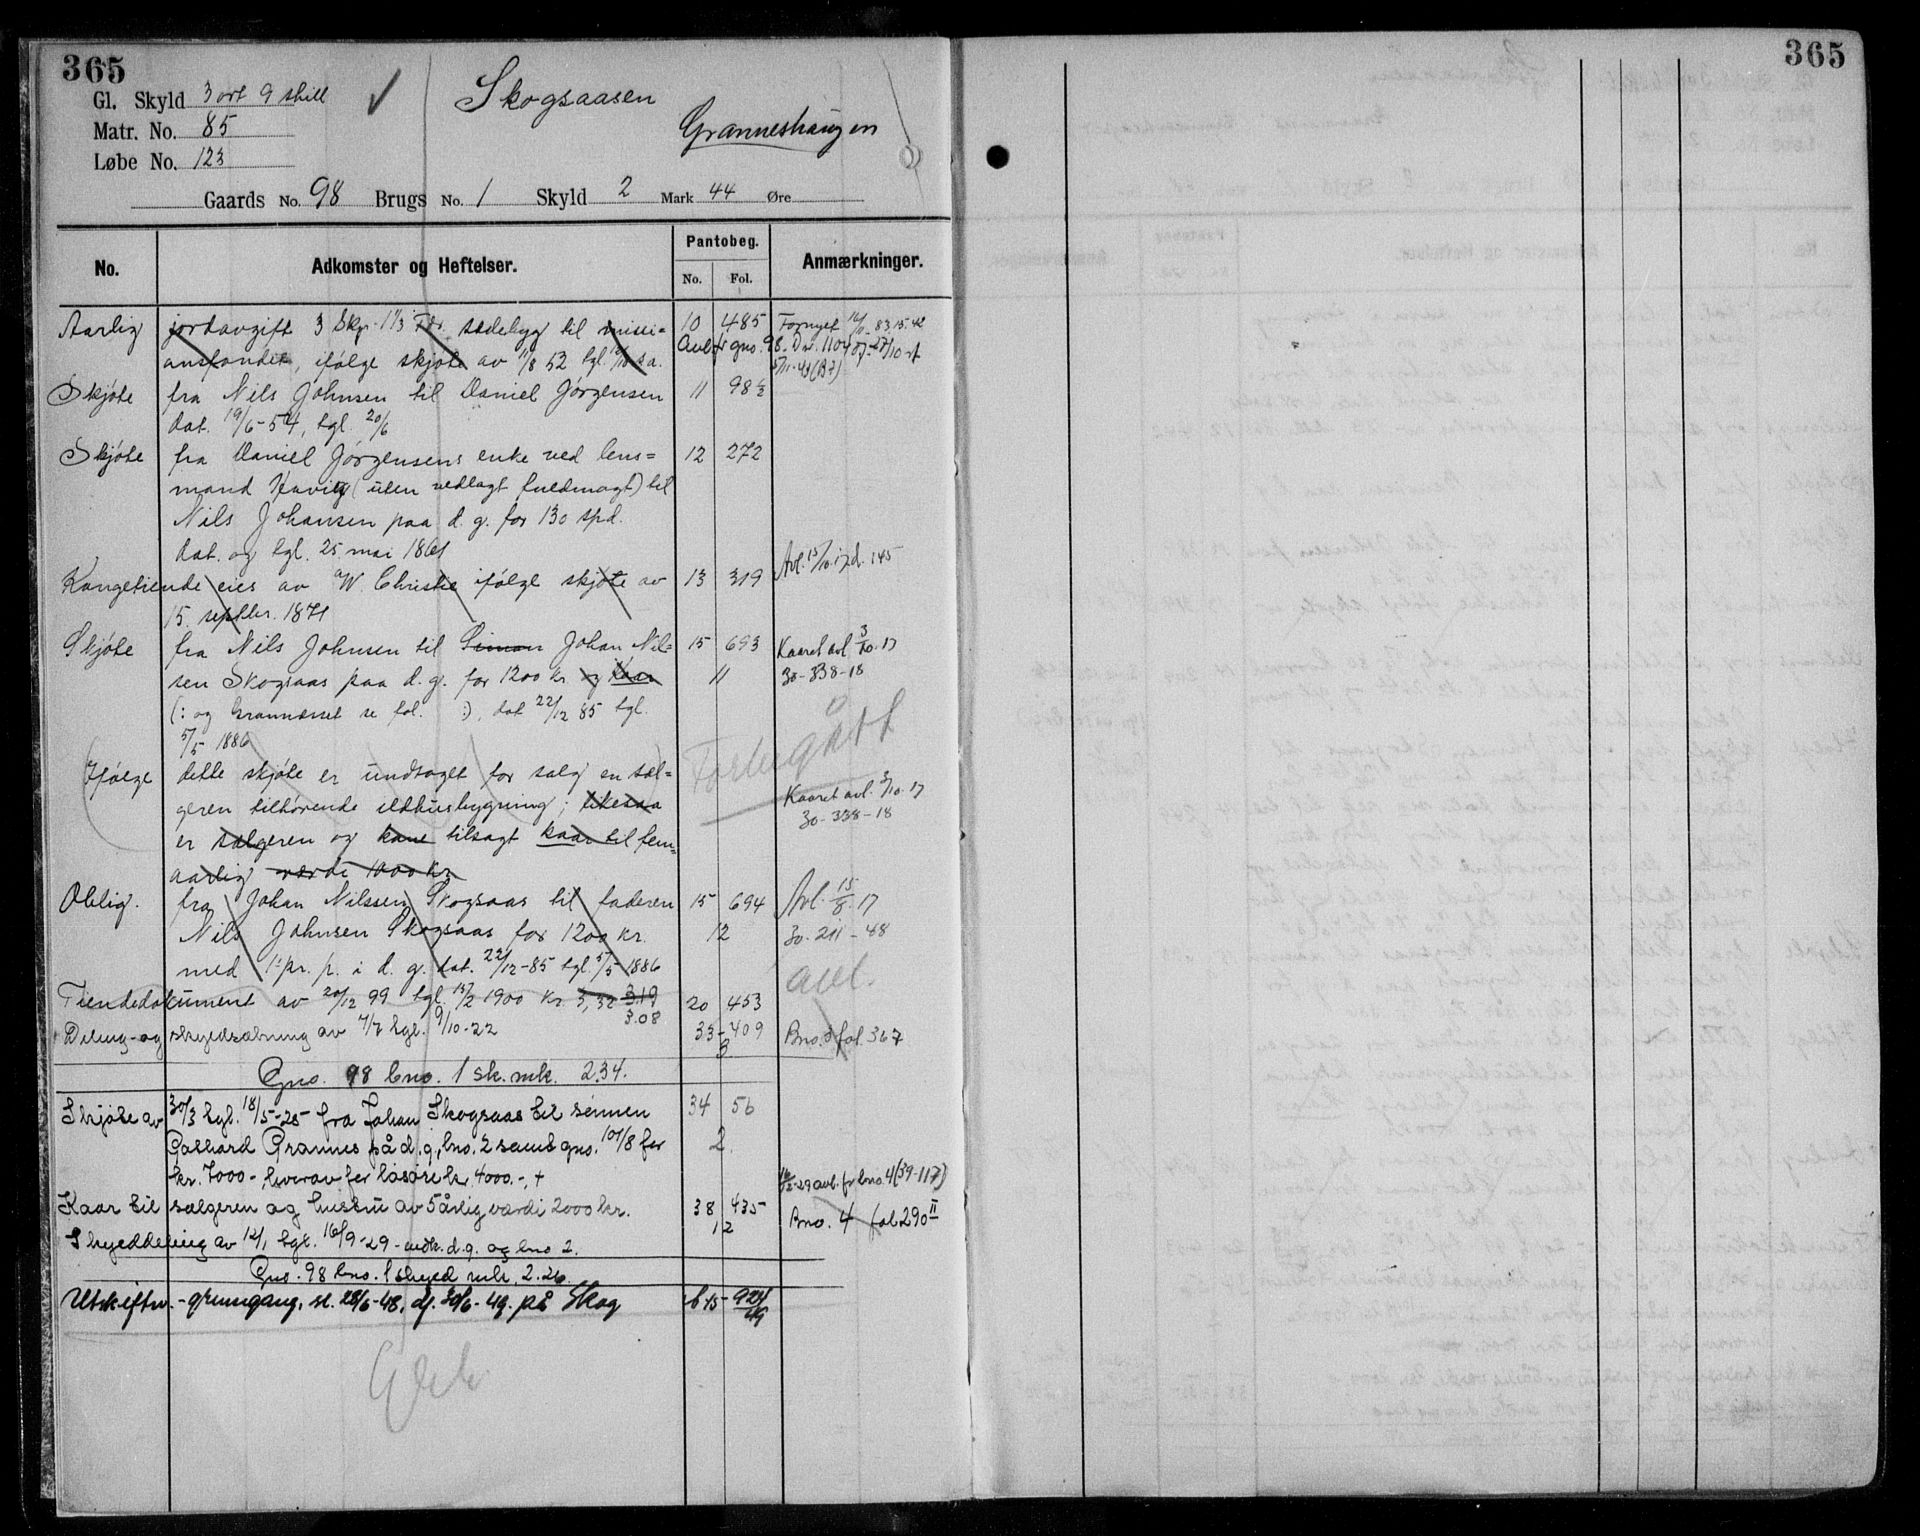 365
365
Gl. Skyld 3 ort 9 skill
Skogsaasen
Matr. No. 85
Granneshaugen
Løbe No. 123
Gaards No. 98 Brugs No. 1 Skyld 2 Mark 44 Øre
No. Adkomster og Heftelser. Pantobeg. No. Fol. Anmærkninger.
Aarlig jordavgift 3 Skp. 1 1/3 Fdr. sædebyg til missi= 10 485 Fornyet
ansfondet, ifølge skjøte av 11/8 52 tgl. s.a.
Skjøte fra Nils Johnsen til Daniel Jørgensen 11 98
dat. 19/6-54, tgl. 20/6
Skjøte fra Daniel Jørgensens enke ved lens= 12 272
mand Havig (uten vedlagt fuldmagt) til
Nils Johansen paa d. g. for 130 spd.
dat. og tgl. 25 mai 1861
Kongetiende eies av W. Christie ifølge skjøte av 13 319 Avl. 15/10. 17 d. 145
15. septbr. 1871
Skjøte fra Nils Johnsen til Simon Johan Nil= 15 693 Kaaret avl. 3/10. 17
sen Skogsaas paa d. g. for 1200 kr. og kaar 11 30-338-18
(: og Grannæsset se fol. :), dat 22/12 85 tgl.
5/5 1886
Forbigått
Ifølge dette skjøte er undtaget for salg en sæl=
geren tilhørende ildhusbygning; likesaa Kaaret avl. 3/10. 17
er sælgeren og kone tilsagt kaar til fem= 30-338-18
aarlig værdi 1000 kr.
Oblig. fra Johan Nilssen Skogsaas til faderen 15 694 Avl. 15/8. 17
Nils Johnsen Skogsaas for 1200 kr. 12 30-211-48
med 1' pr. p. i d. g. dat. 22/12-85 tgl. 5/5 1886
avl.
Tiendedokument av 20/12 99 tgl. 13/2 1900 kr. 3,32 3.19 20 453
3.08
Deling- og skyldsætning av 7/7 tgl. 9/10-22 33-409 Bno. 3 fol. 367
3
Gno. 98 bno. 1 sk. mk. 2.34.
Skjøte av 30/3 tgl. 18/5-25 fra Johan Skogsaas til sønnen 34 56
Gothard Grannes på d. g., bno. 2 samt gno. 101/8 for 2
kr. 7000-, hvorav for løsøre kr. 4000.-, +
16/2-29 avl. fr bno. 4 (39-117)
Kaar til sælgeren og hustru av 5årlig værdi 2000 kr. 38 435 Bno. 4 fol 290 II
12
Skylddeling av 12/1 tgl. 16/9-29 - vedk. d. g. og bno 2.
Gno. 98 bno. 1 skyld mk. 2.26.
Utskiftn. - grensgang, sl. 28/6-48, dj. 30/6-49. på Skog b 15- 924/49